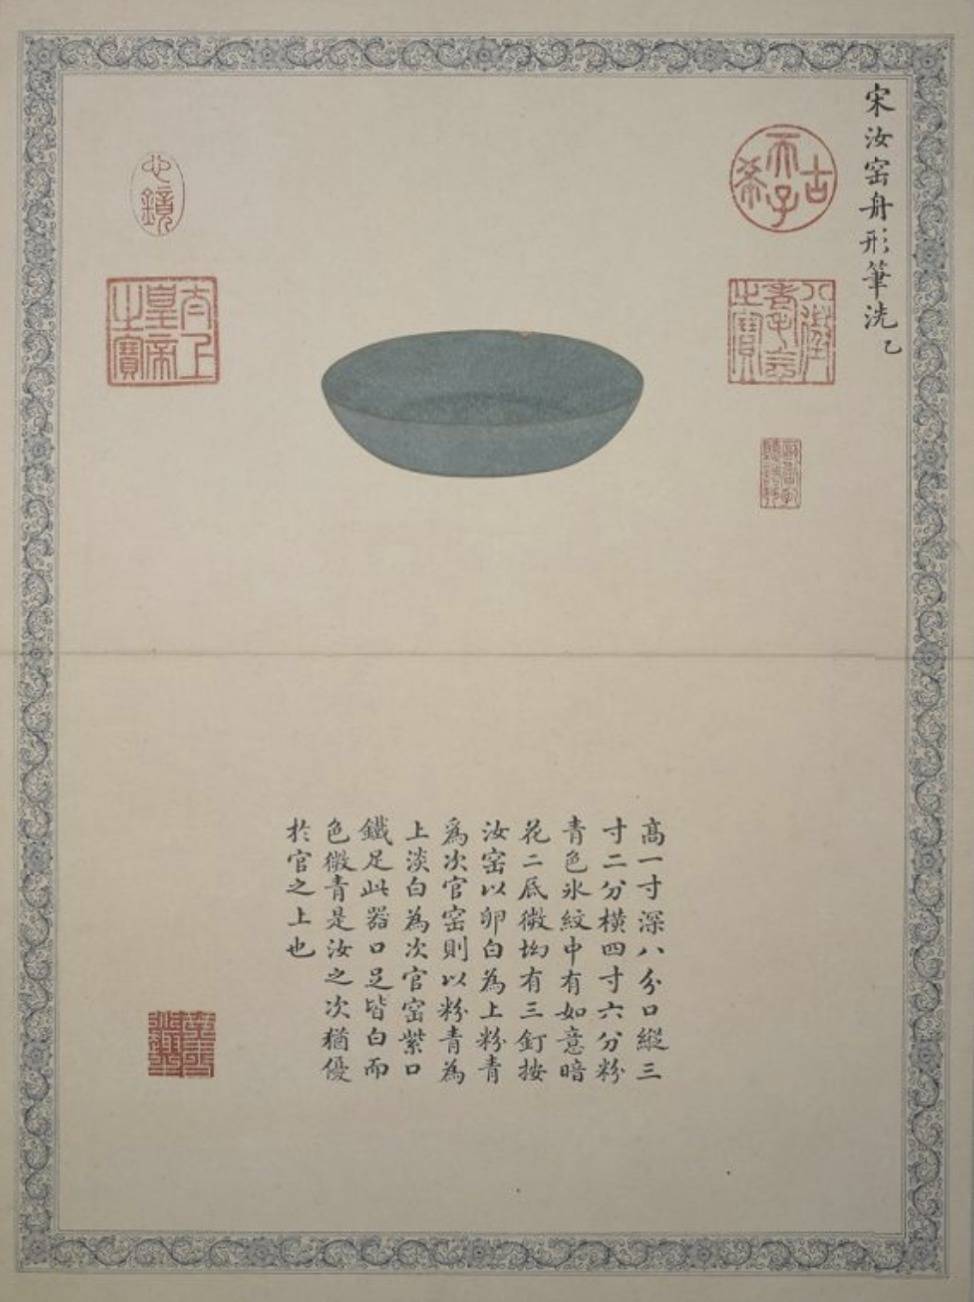 宋汝窑舟形筆洗
乙
古希天子
八徵耄念之寶
心鏡
太上皇帝之寶
高一寸深八分口縱三
寸二分橫四寸六分粉
青色氷紋中有如意暗
花二底微坳有三釘按
汝窑以卵白為上粉青
為次官窑則以粉青為
上淡白為次官窑紫口
鐵足此器口足皆白而
色微青是汝之次猶優
於官之上也